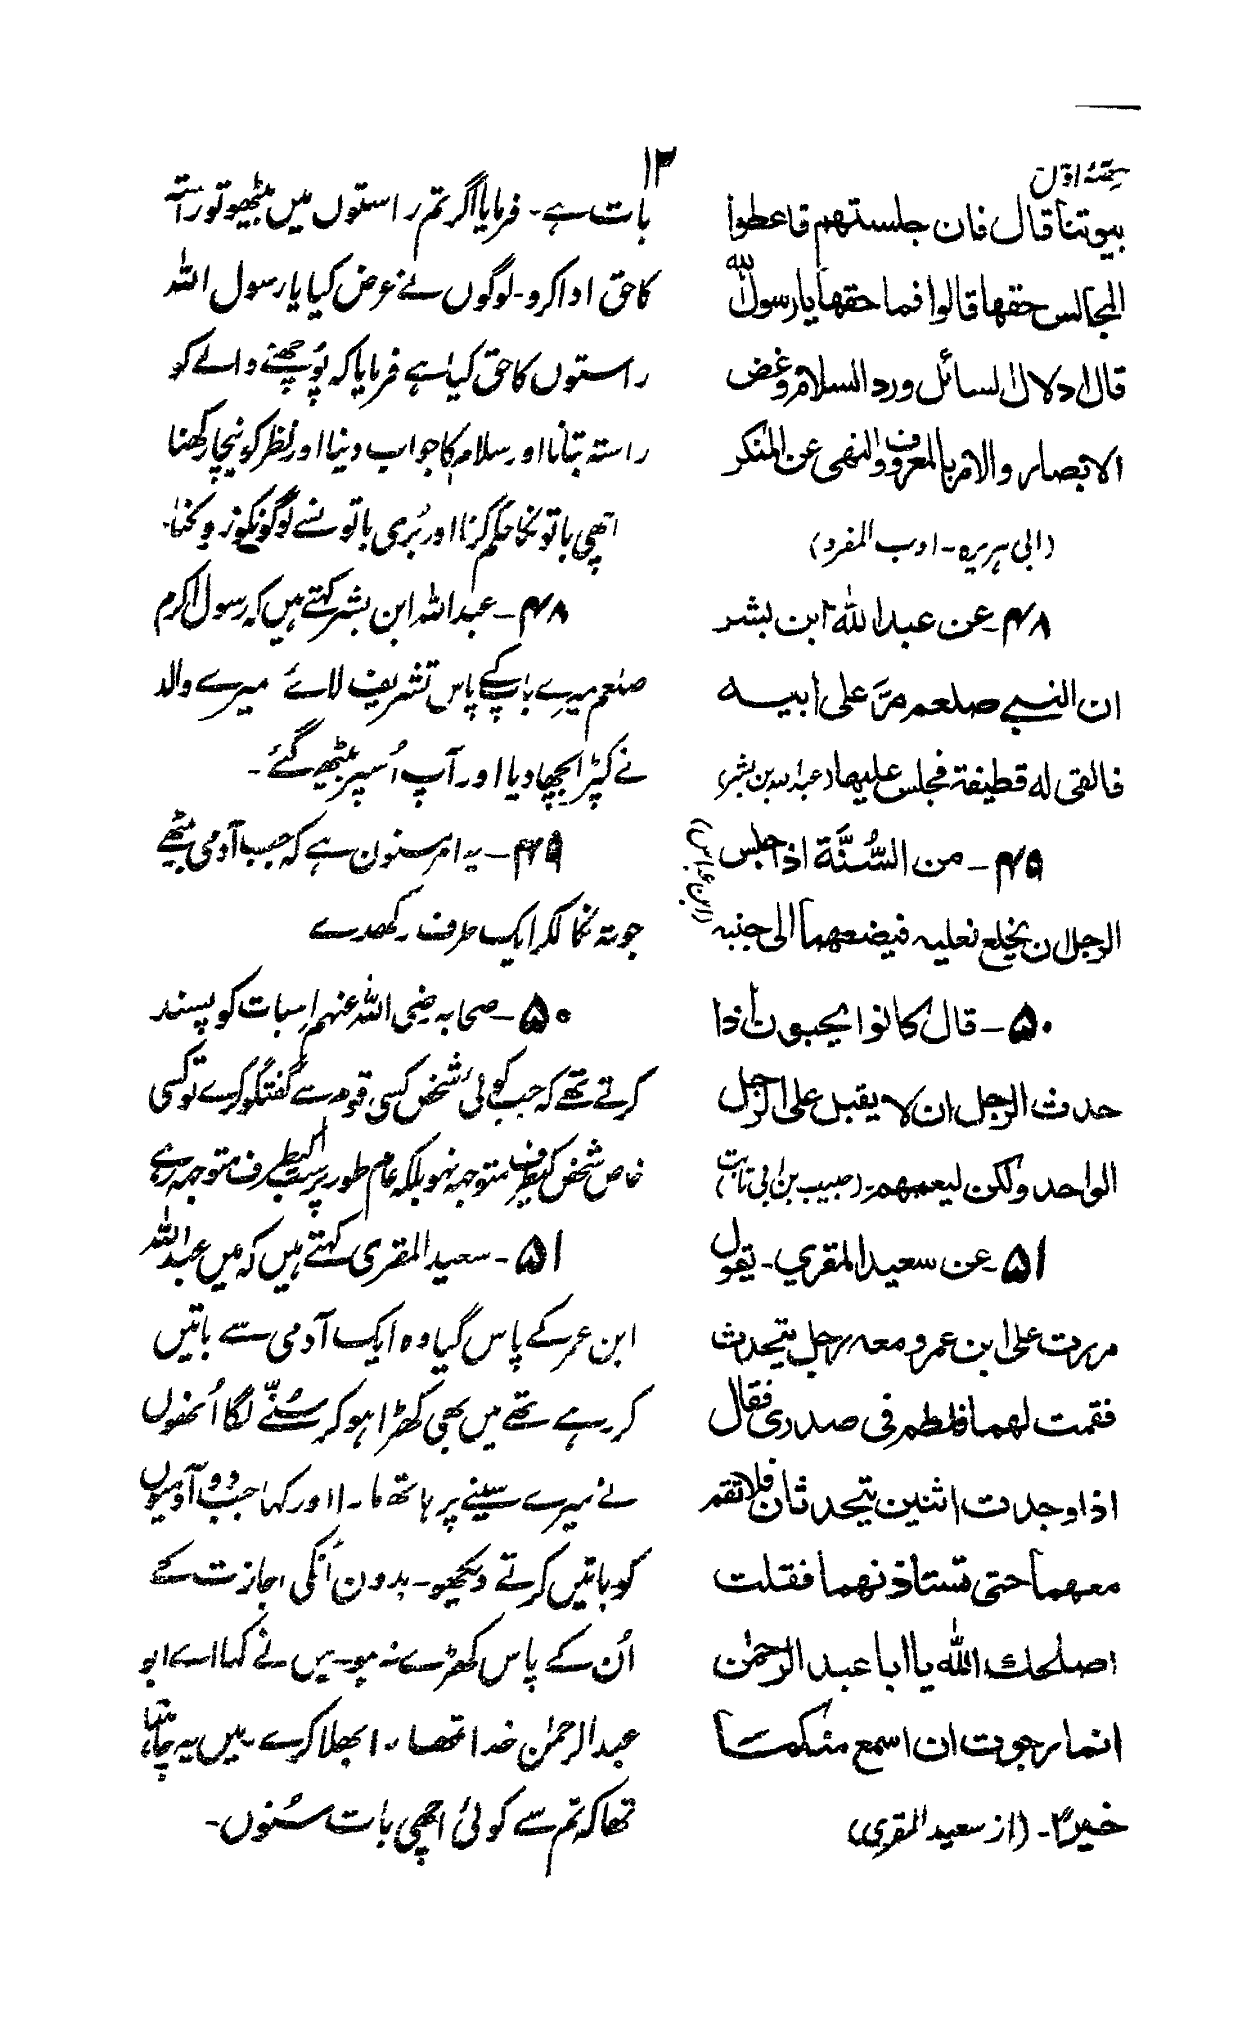 حصّۂ اوّل
۱۳
بیوتنا قال فان جلستهم فاعطوا
المجالس حقها قالوا فما حقها یا رسول الله
قال ادلال السائل ورد السلام وغض
الابصار والامر بالمعروف والنهی عن المنکر
(ابی ہریرہ - ادب المفرد)
۴۸ - عن عبد اللہ ابن بشر
ان النبی صلعم مرّ علی ابیه
فالقی له قطیفة فجلس علیها (عبداللہ بن بشر)
۴۹ - من السُّنَّة اذا جلس
الرجل ان یخلع نعلیه فیضعهما الی جنبه
(ابن عباس)
۵۰ - قال کانوا یحبون اذا
حدث الرجل ان لا یقبل علی الرجل
الواحد ولکن لیعمهم - (حبیب بن ابی ثابت)
۵۱ - عن سعید المقری - یقول
مررت علی ابن عمر و معه رجل یتحدث
فقمت لهما فلطم فی صدری فقال
اذا وجدت اثنین یتحدثان فلا تقم
معهما حتی تستاذنهما فقلت
اصلحك الله یا ابا عبد الرحمٰن
انما رجوت ان اسمع منکما
خیرًا - (از سعید المقری)
بات ہے - فرمایا اگر تم راستوں میں بیٹھو تو راستہ
کا حق ادا کرو - لوگوں نے عرض کیا یا رسول اللہ
راستوں کا حق کیا ہے فرمایا کہ پُوچھنے والے کو
راستہ بتانا اور سلام کا جواب دینا اور نظر کو نیچا رکھنا
اچھی باتونکا حکم کرنا اور بُری باتوں سے لوگونکو روکنا -
۴۸ - عبد اللہ ابن بشر کہتے ہیں کہ رسول اکرم
صلعم میرے باپ کے پاس تشریف لائے میرے والد
نے کپڑا بچھا دیا اور آپ اُسپر بیٹھ گئے -
۴۹ - یہ امر مسنون ہے کہ جب آدمی بیٹھے
جوتہ نکالکر ایک طرف رکھدے
۵۰ - صحابہ رضی اللہ عنہم اِسبات کو پسند
کرتے تھے کہ جب کوئی شخص کسی قوم سے گفتگو کرے تو کسی
خاص شخص کیطرف متوجہ نہو بلکہ عام طور پر سب کیطرف متوجہ رہے
۵۱ - سعید المقری کہتے ہیں کہ میں عبد اللہ
ابن عمر کے پاس گیا وہ ایک آدمی سے باتیں
کر رہے تھے میں بھی کھڑا ہو کر سُننے لگا اُنھوں
نے میرے سینے پر ہاتھ مارا اور کہا جب دو آدمیوں
کو باتیں کرتے دیکھو - بدون اُنکی اجازت کے
اُن کے پاس کھڑے نہ ہو - میں نے کہا اے ابو
عبد الرحمٰن خدا تمھارا بھلا کرے - میں یہ چاہتا
تھا کہ تم سے کوئی اچھی بات سُنوں -